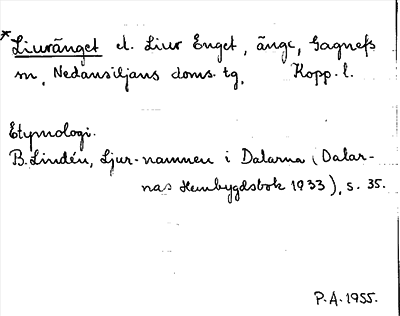 *Liuränget el. Liur Enget, änge, Gagnefs
sn, Nedansiljans doms. tg, Kopp. l.
Etymologi.
B. Lindén, Ljur-namnen i Dalarna (Dalar-
nas Hembygdsbok 1933), s. 35.
P.A. 1955.